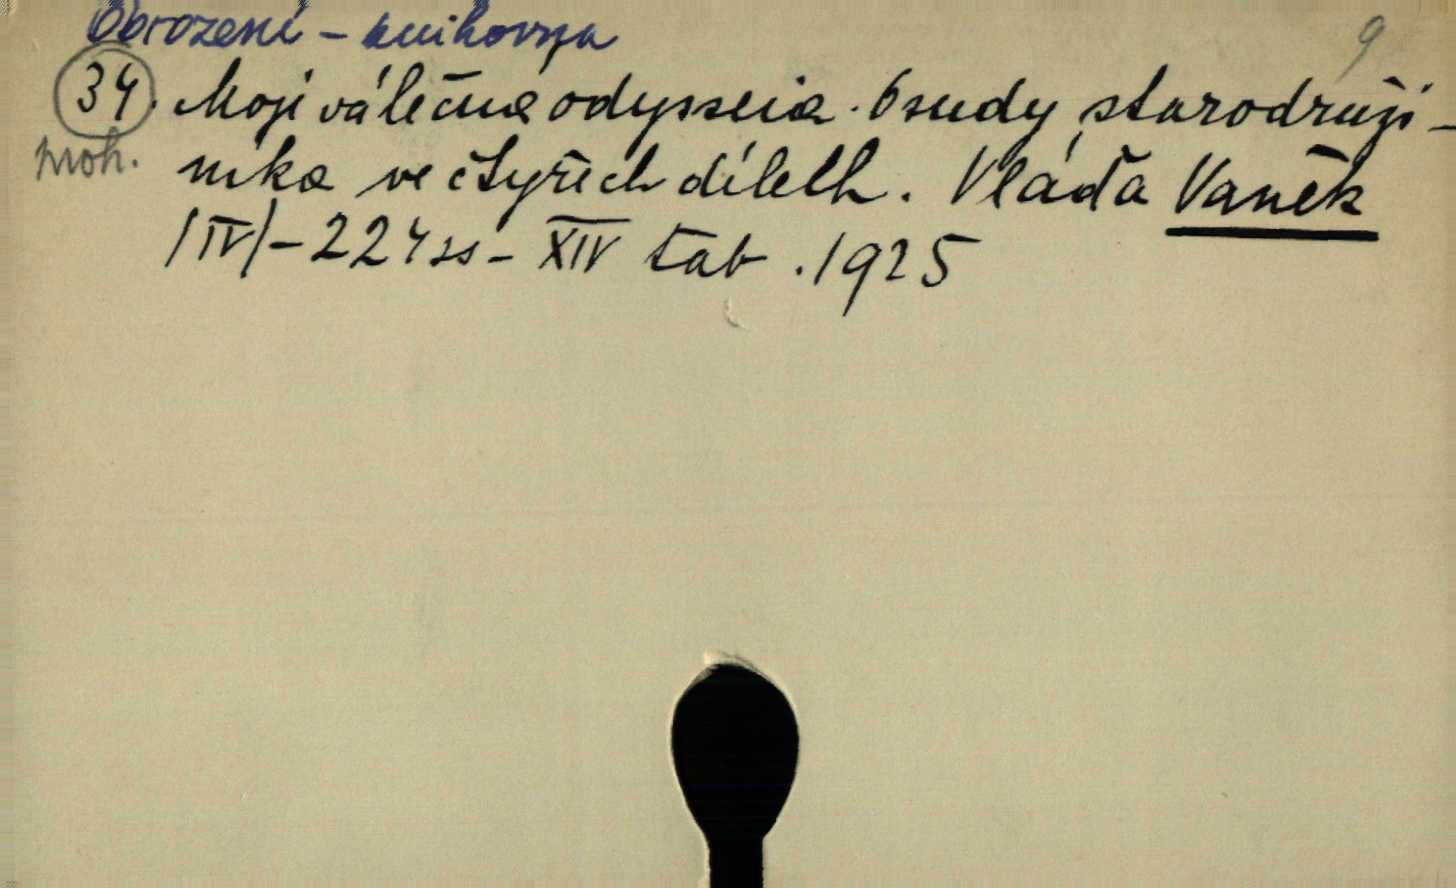 Obrození - knihovna
9
34. Moji válečná odysseia. Osudy starodruži-
níka ve čtyřech dílech. Vláďa Vaněk
/IV/ - 224 ss - XIV tab. 1925